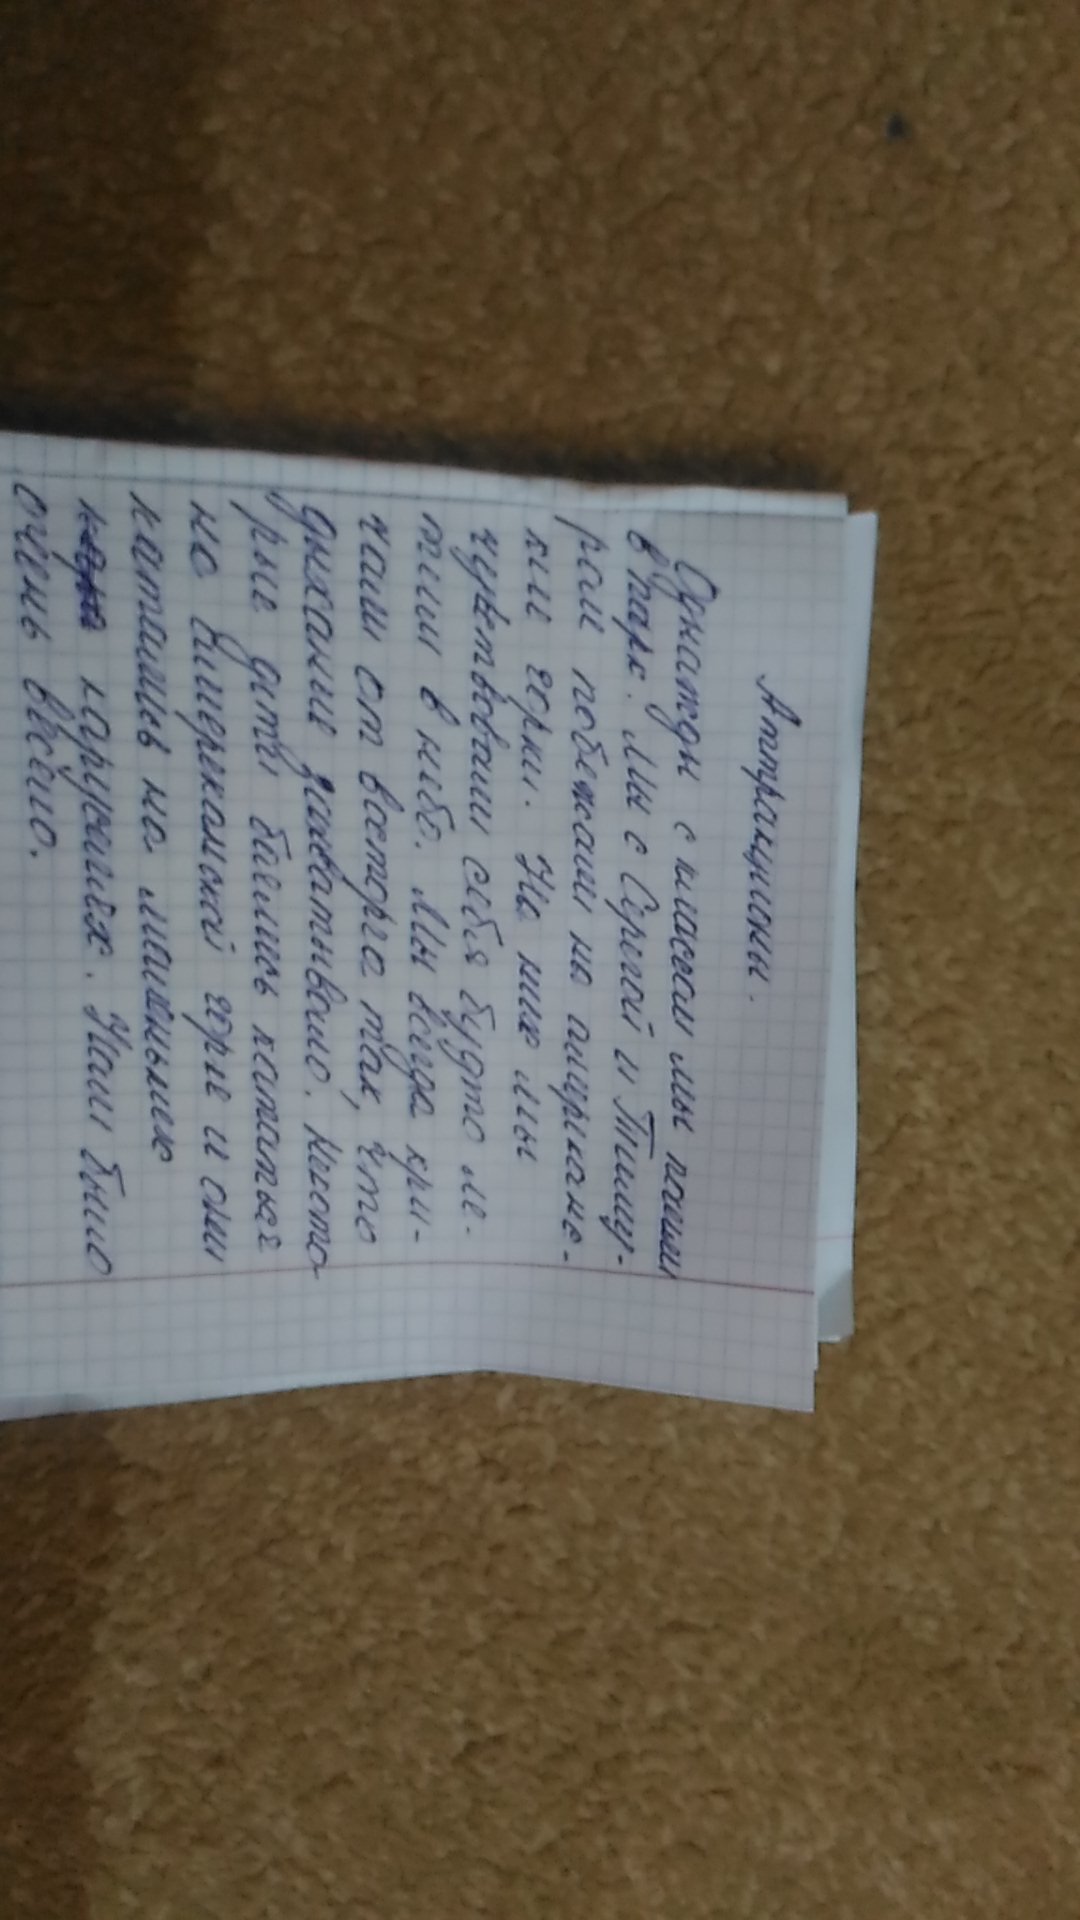 Аттракционы.
Однажды с классом мы пошли
в парк. Мы с Серёгой и Тиму-
ром побежали на американс-
кие горки. На них мы
чувствовали себя будто ле-
тим в небо. Мы везде кри-
чали от восторга так, что
дыхание захватывало. Некото
рые дети боялись кататься
на американской горке и они
катались на маленьких
каруселях. Нам было
очень весело.